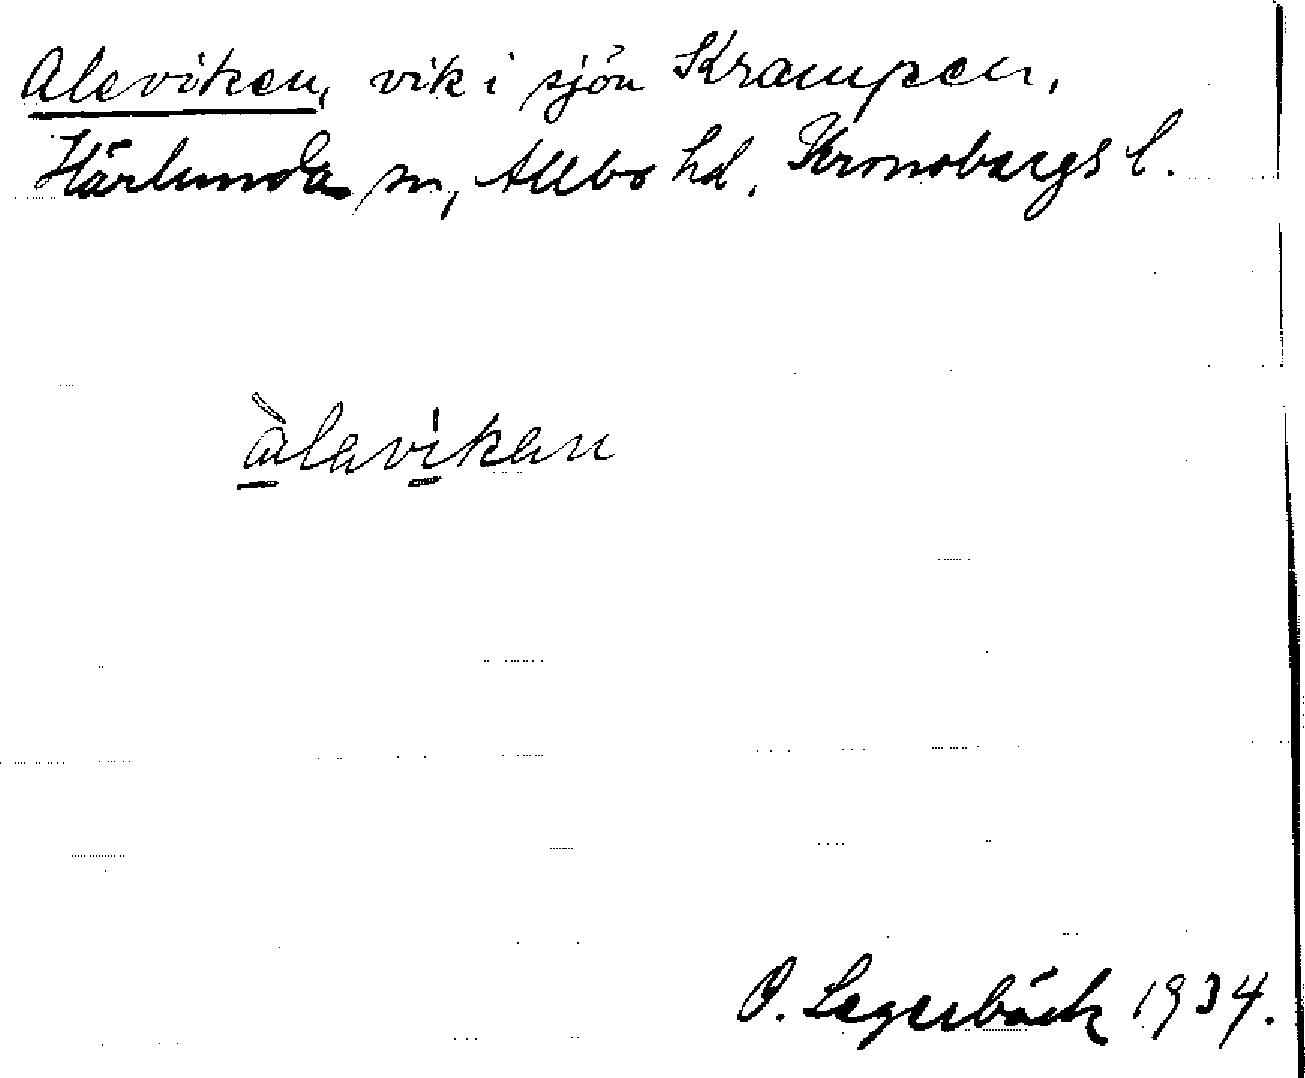 Aleviken, vik i sjön Krampen,
Härlunda sn, Allbo hd, Kronobergs l.
àlavikan
O. Lagerbäck 1934.